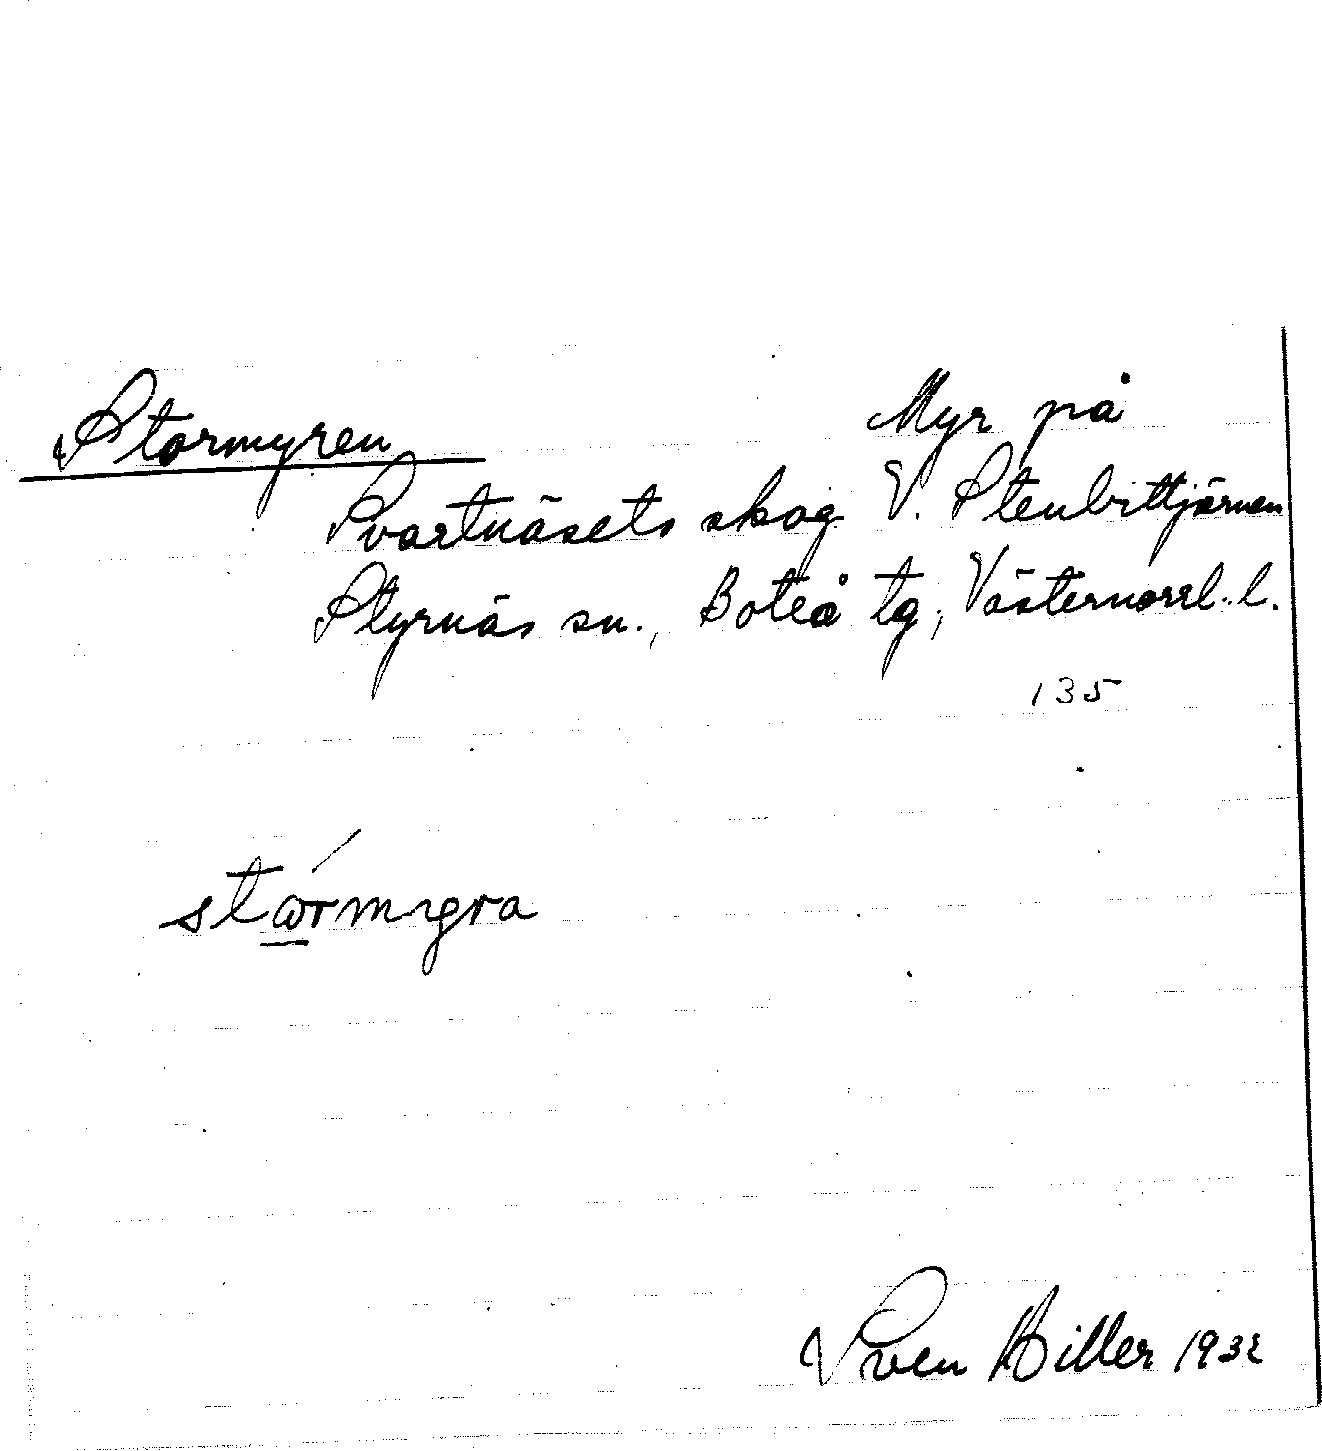 Stormyren Myr på
Svartnäsets skog V. Stenbittjärnen
Styrnäs sn., Boteå tg, Västernorrl. l.
135
Sven Hiller 1932